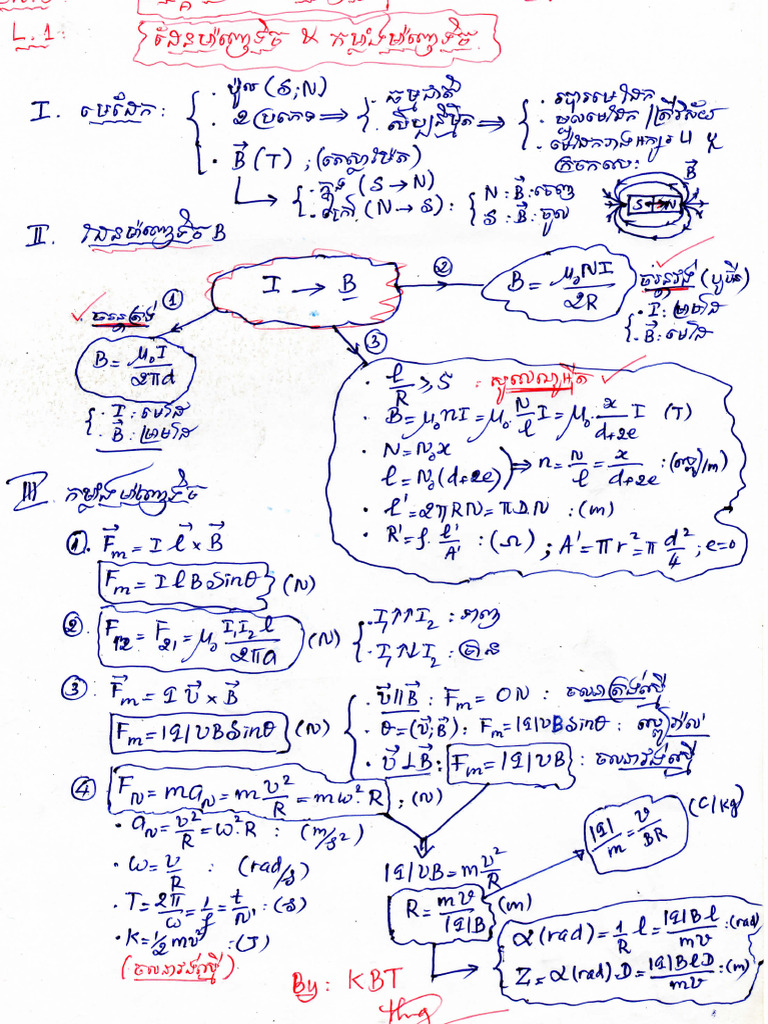 L.1 : ដែនម៉ាញេទិច & កម្លាំងម៉ាញេទិច
I. មេដែក :
. ប៉ូល (S; N)
. 2 ប្រភេទ ⟹
. ធម្មជាតិ
. សិប្បនិម្មិត ⟹
. របារមេដែក
. ម្ជុលមេដែក / ត្រីវិស័យ
. មេដែករាងអក្សរ U ឬ
ក្រចកសេះ
. B⃗ (T) ; (តេស្លាម៉ែត្រ)
. ក្នុង (S → N)
. ក្រៅ (N → S) :
N : B⃗ : ចេញ
S : B⃗ : ចូល
B⃗
S N
II. ដែនម៉ាញេទិច B
I → B
① ចរន្តត្រង់
B = μ₀I / 2πd
. I : មេដៃ
. B⃗ : ម្រាមដៃ
②
B = μ₀NI / 2R
ចរន្តវង់ (បូប៊ីន)
. I : ម្រាមដៃ
. B⃗ : មេដៃ
③
. l/R ≥ 5 : សូលេណូអ៊ីត
. B = μ₀nI = μ₀ N/l I = μ₀ · x/(d+2e) I (T)
. N = N₀x
l = N₀(d+2e) ⟹ n = N/l = x/(d+2e) : (ស្ពៀ/m)
. l' = 2πRN = πDN : (m)
. R' = ρ · l'/A' : (Ω) ; A' = πr² = π d²/4 ; e=0
III. កម្លាំងម៉ាញេទិច
①. F⃗m = I l⃗ × B⃗
Fm = I l B Sinθ (N)
②. F₁₂ = F₂₁ = μ₀ I₁I₂l / 2πa (N)
. I₁↑↑I₂ : ទាញ
. I₁↑↓I₂ : ច្រាន
③. F⃗m = q v⃗ × B⃗
Fm = |q|vB Sinθ (N)
. v⃗ ∥ B⃗ : Fm = 0N : ចលនាត្រង់ស្មើ
. θ = (v⃗; B⃗) : Fm = |q|vB Sinθ : ស្ពៀរ៉ាល់
. v⃗ ⊥ B⃗ : Fm = |q|vB : ចលនាវង់ស្មើ
④ FN = maN = m v²/R = mω²·R ; (N)
. aN = v²/R = ω²·R : (m/s²)
. ω = v/R : (rad/s)
. T = 2π/ω = 1/f = t/N' : (s)
. K = 1/2 mv² : (J)
(ចលនាវង់ស្មើ)
|q|vB = m v²/R
R = mv / |q|B (m)
|q|/m = v/BR (C/kg)
α(rad) = 1/R l = |q|Bl / mv : (rad)
Z = α(rad)·D = |q|BlD / mv : (m)
By : KBT